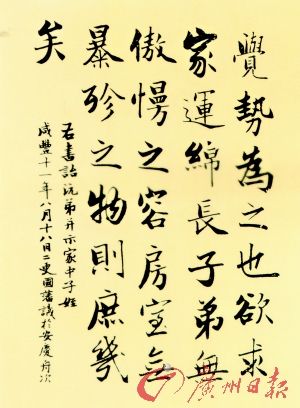 覺勢為之也欲求
家運綿長子弟無
傲慢之容房室無
暴殄之物則庶幾
矣
右書詒沅弟并示家中子姪
咸豐十一年八月十八日二更國藩識於安慶舟次
廣州日报